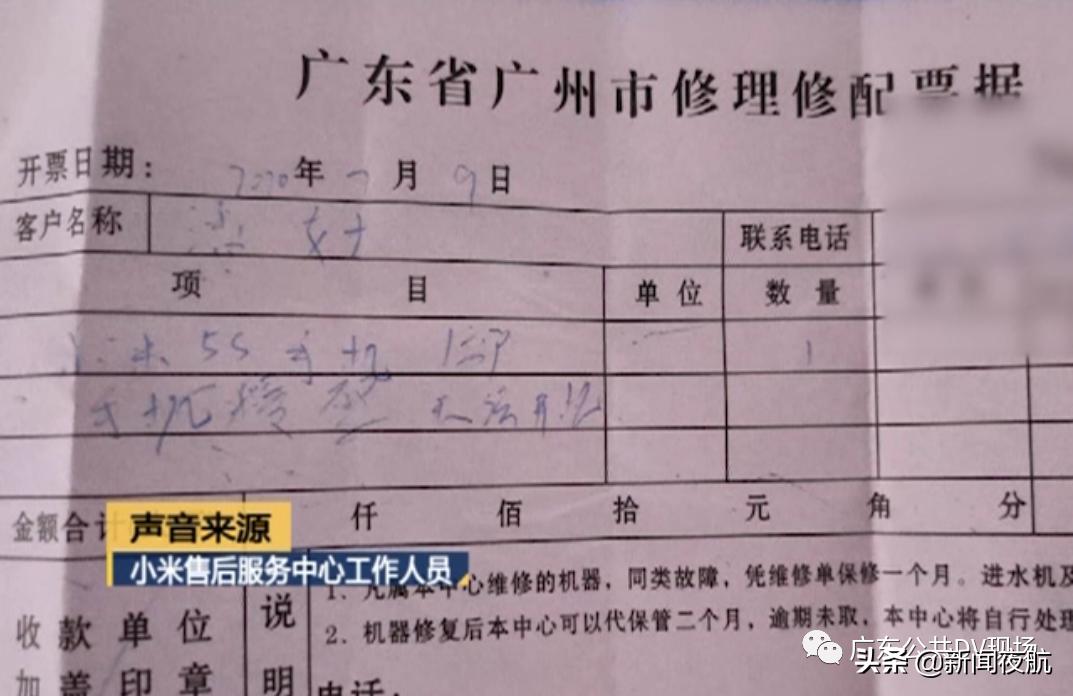 广东省广州市修理修配票据
开票日期： 2020年 7月 9日
客户名称 女士 联系电话
项目 单位 数量
小米5S手机 1部 1
手机 无法开机
金额合计 仟 佰 拾 元 角 分
声音来源
小米售后服务中心工作人员
1、凡属本中心维修的机器，同类故障，凭维修单保修一个月。进水机及
收款单位 说 2、机器修复后本中心可以代保管二个月，逾期未取，本中心将自行处理
加盖印章 明 电话：
广东公共DV现场
头条 @新闻夜航